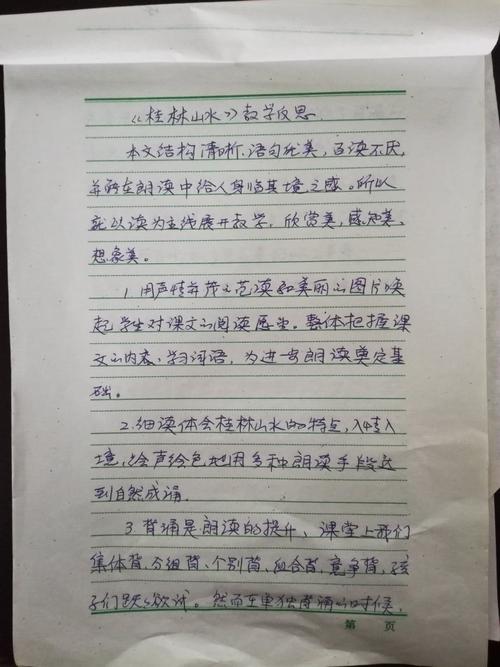 《桂林山水》教学反思.
本文结构清晰,语句优美,百读不厌,
并能在朗读中给人身临其境之感。所以
就以读为主线展开教学,欣赏美,感知美,
想象美。
1、用声情并茂的范读和美丽的图片唤
起学生对课文的阅读愿望。整体把握课
文的内容、学习词语,为进一步朗读奠定基
础。
2.细读体会桂林山水的特点,入情入
境,绘声绘色地用多种朗读手段达
到自然成诵.
3.背诵是朗读的提升、课堂上我们
集体背、分组背、个别背、组合背,竞争背,孩
子们跃跃欲试。然而在单独背诵的时候,
第 页